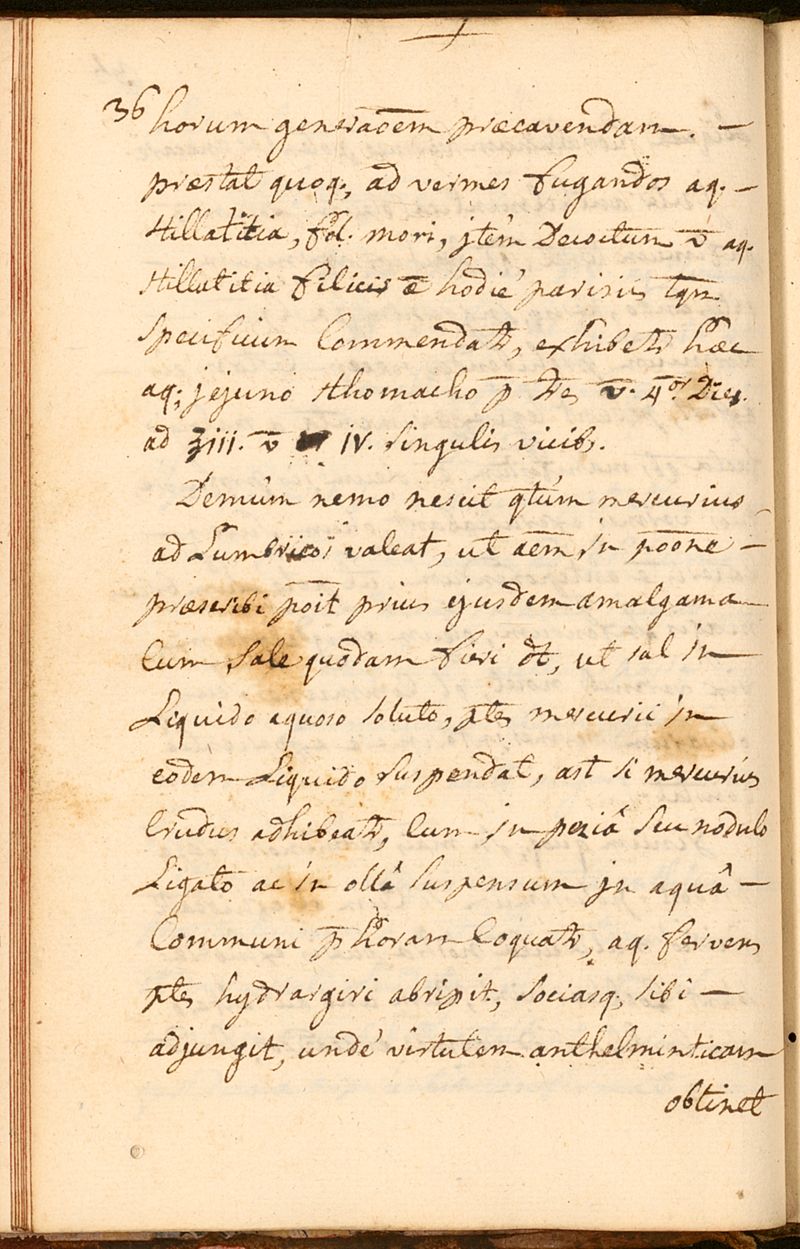 36 horum generaōem præcavendam. —
præstat quoq;, ad vermes fugandos aq. —
stillatitia, fol. mori, jtém Decoctum v̄ aq.
stillatitia filicis ē hodié parisiis tqm
specificum Commendatr, exhibetr hæc
aq; jejuno sthomacho p̄ tres v̄. 4or Dies.
ad ʒiii. v̄ iv. singulis vicib;.
Demùm nemo nescit qtùm mercurius
ad Lumbricos valeat, ut aēm in pōōne —
præscribi pōīt prius ejusdem amalgama
Cum Sale quodam fieri ōt, ut sal in
Liquido aquoso soluto, ptes mercurii in
eodem Liquido suspendat, ast si mercurius
Crudus adhibeatr, Cum in peziâ seu nodulo
Ligato ac in ollâ suspensum jn aquâ —
Communi p̄ horam Coquatr, aq. fervens
ptes hydrargiri abripit, sociasq; sibi —
adjungit, undé virtutem anthelminticam
obtinet